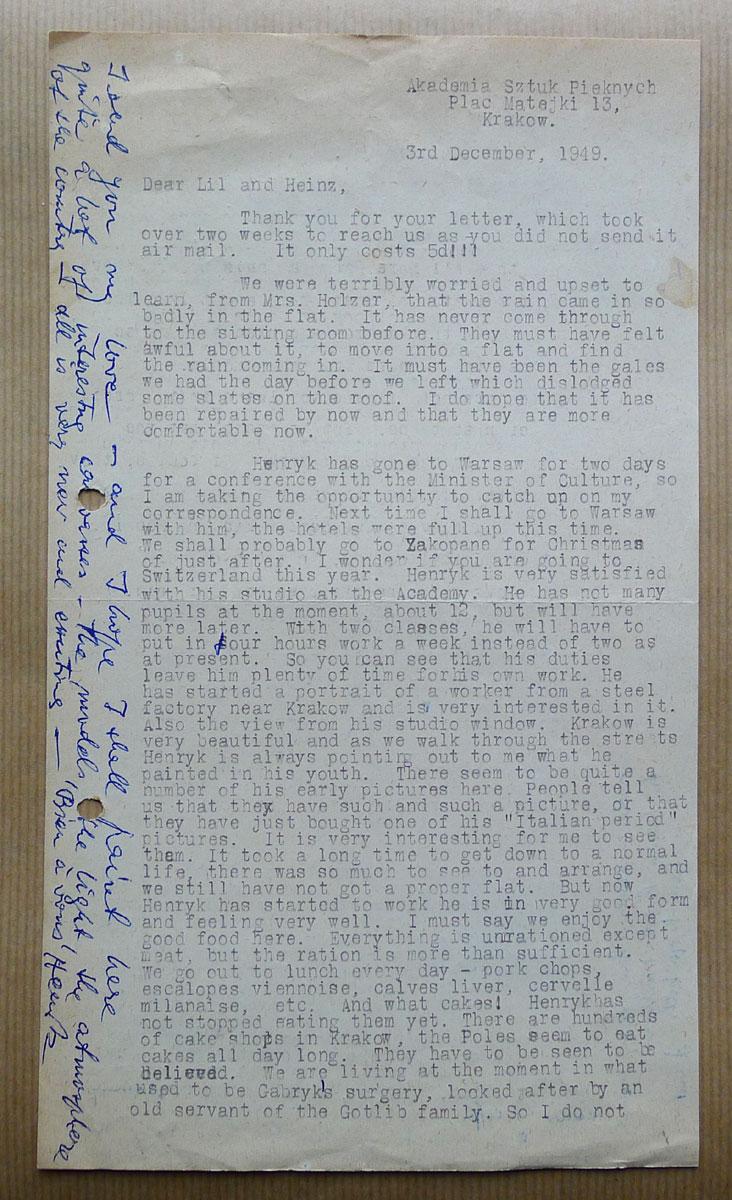 Akademia Sztuk Pieknych
Plac Matejki 13,
Krakow.
3rd December, 1949.
Dear Lil and Heinz,
Thank you for your letter, which took
over two weeks to reach us as you did not send it
air mail. It only costs 5d!!!
We were terribly worried and upset to
learn, from Mrs. Holzer, that the rain came in so
badly in the flat. It has never come through
to the sitting room before. They must have felt
awful about it, to move into a flat and find
the rain coming in. It must have been the gales
we had the day before we left which dislodged
some slates on the roof. I do hope that it has
been repaired by now and that they are more
comfortable now.
Henryk has gone to Warsaw for two days
for a conference with the Minister of Culture, so
I am taking the opportunity to catch up on my
correspondence. Next time I shall go to Warsaw
with him, the hotels were full up this time.
We shall probably go to Zakopane for Christmas
of just after. I wonder if you are going to
Switzerland this year. Henryk is very satisfied
with his studio at the Academy. He has not many
pupils at the moment, about 12, but will have
more later. With two classes, he will have to
put in four hours work a week instead of two as
at present. So you can see that his duties
leave him plenty of time forhis own work. He
has started a portrait of a worker from a steel
factory near Krakow and is very interested in it.
Also the view from his studio window. Krakow is
very beautiful and as we walk through the streets
Henryk is always pointing out to me what he
painted in his youth. There seem to be quite a
number of his early pictures here. People tell
us that they have such and such a picture, or that
they have just bought one of his "Italian period"
pictures. It is very interesting for me to see
them. It took a long time to get down to a normal
life, there was so much to see to and arrange, and
we still have not got a proper flat. But now
Henryk has started to work he is in very good form
and feeling very well. I must say we enjoy the
good food here. Everything is unrationed except
meat, but the ration is more than sufficient.
We go out to lunch every day - pork chops,
escalopes viennoise, calves liver, cervelle
milanaise, etc. And what cakes! Henrykhas
not stopped eating them yet. There are hundreds
of cake shops in Krakow, the Poles seem to eat
cakes all day long. They have to be seen to be
believed. We are living at the moment in what
used to be Gabryk's surgery, looked after by an
old servant of the Gotlib family. So I do not
I send you my love — and I hope I shall paint here
quite a lot of interesting canvases - the models the light the atmosphere
of the country - all is very new and exciting —
Bien à vous! Henryk